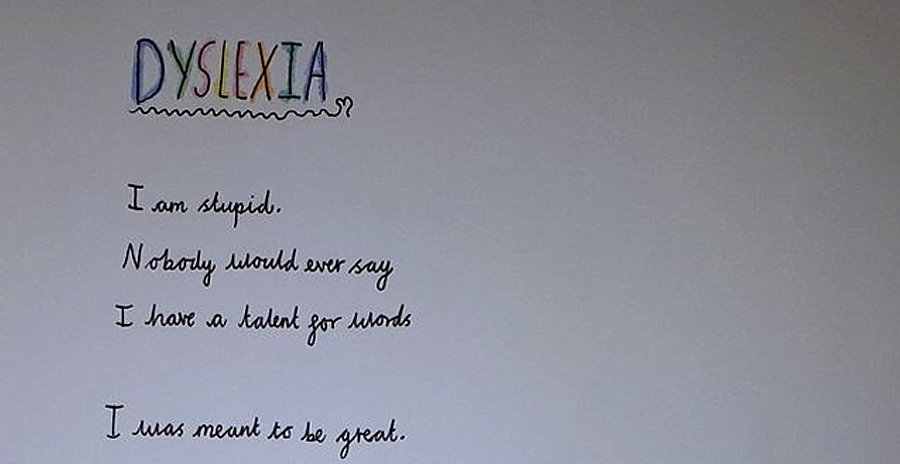 DYSLEXIA
I am stupid.
Nobody would ever say
I have a talent for words
I was meant to be great.